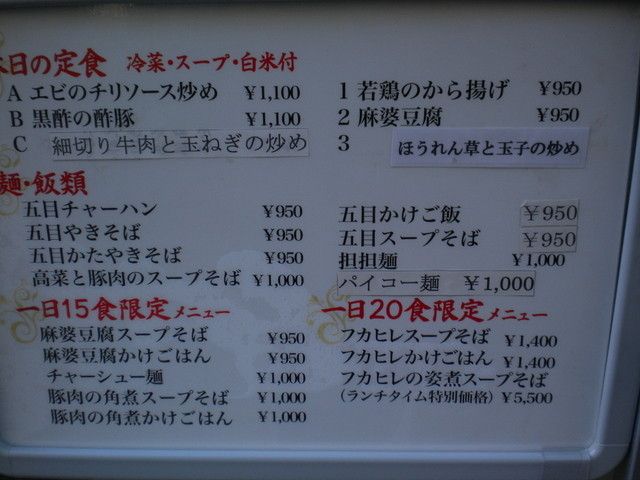 本日の定食 冷菜・スープ・白米付
A エビのチリソース炒め ¥1,100
B 黒酢の酢豚 ¥1,100
C 細切り牛肉と玉ねぎの炒め
1 若鶏のから揚げ ¥950
2 麻婆豆腐 ¥950
3 ほうれん草と玉子の炒め
麺・飯類
五目チャーハン ¥950
五目やきそば ¥950
五目かたやきそば ¥950
高菜と豚肉のスープそば ¥1,000
五目かけご飯 ¥950
五目スープそば ¥950
担担麺 ¥1,000
パイコー麺 ¥1,000
一日15食限定メニュー
麻婆豆腐スープそば ¥950
麻婆豆腐かけごはん ¥950
チャーシュー麺 ¥1,000
豚肉の角煮スープそば ¥1,000
豚肉の角煮かけごはん ¥1,000
一日20食限定メニュー
フカヒレスープそば ¥1,400
フカヒレかけごはん ¥1,400
フカヒレの姿煮スープそば
(ランチタイム特別価格) ¥5,500